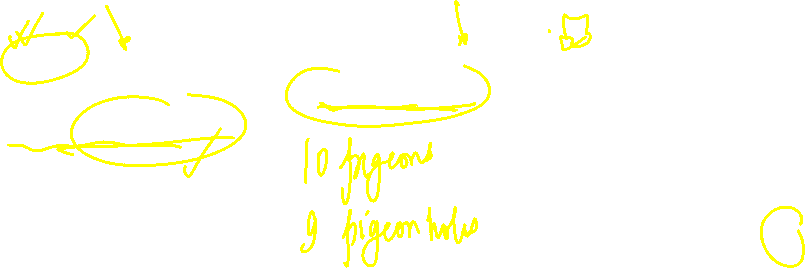 10 pigeons
9 pigeon holes